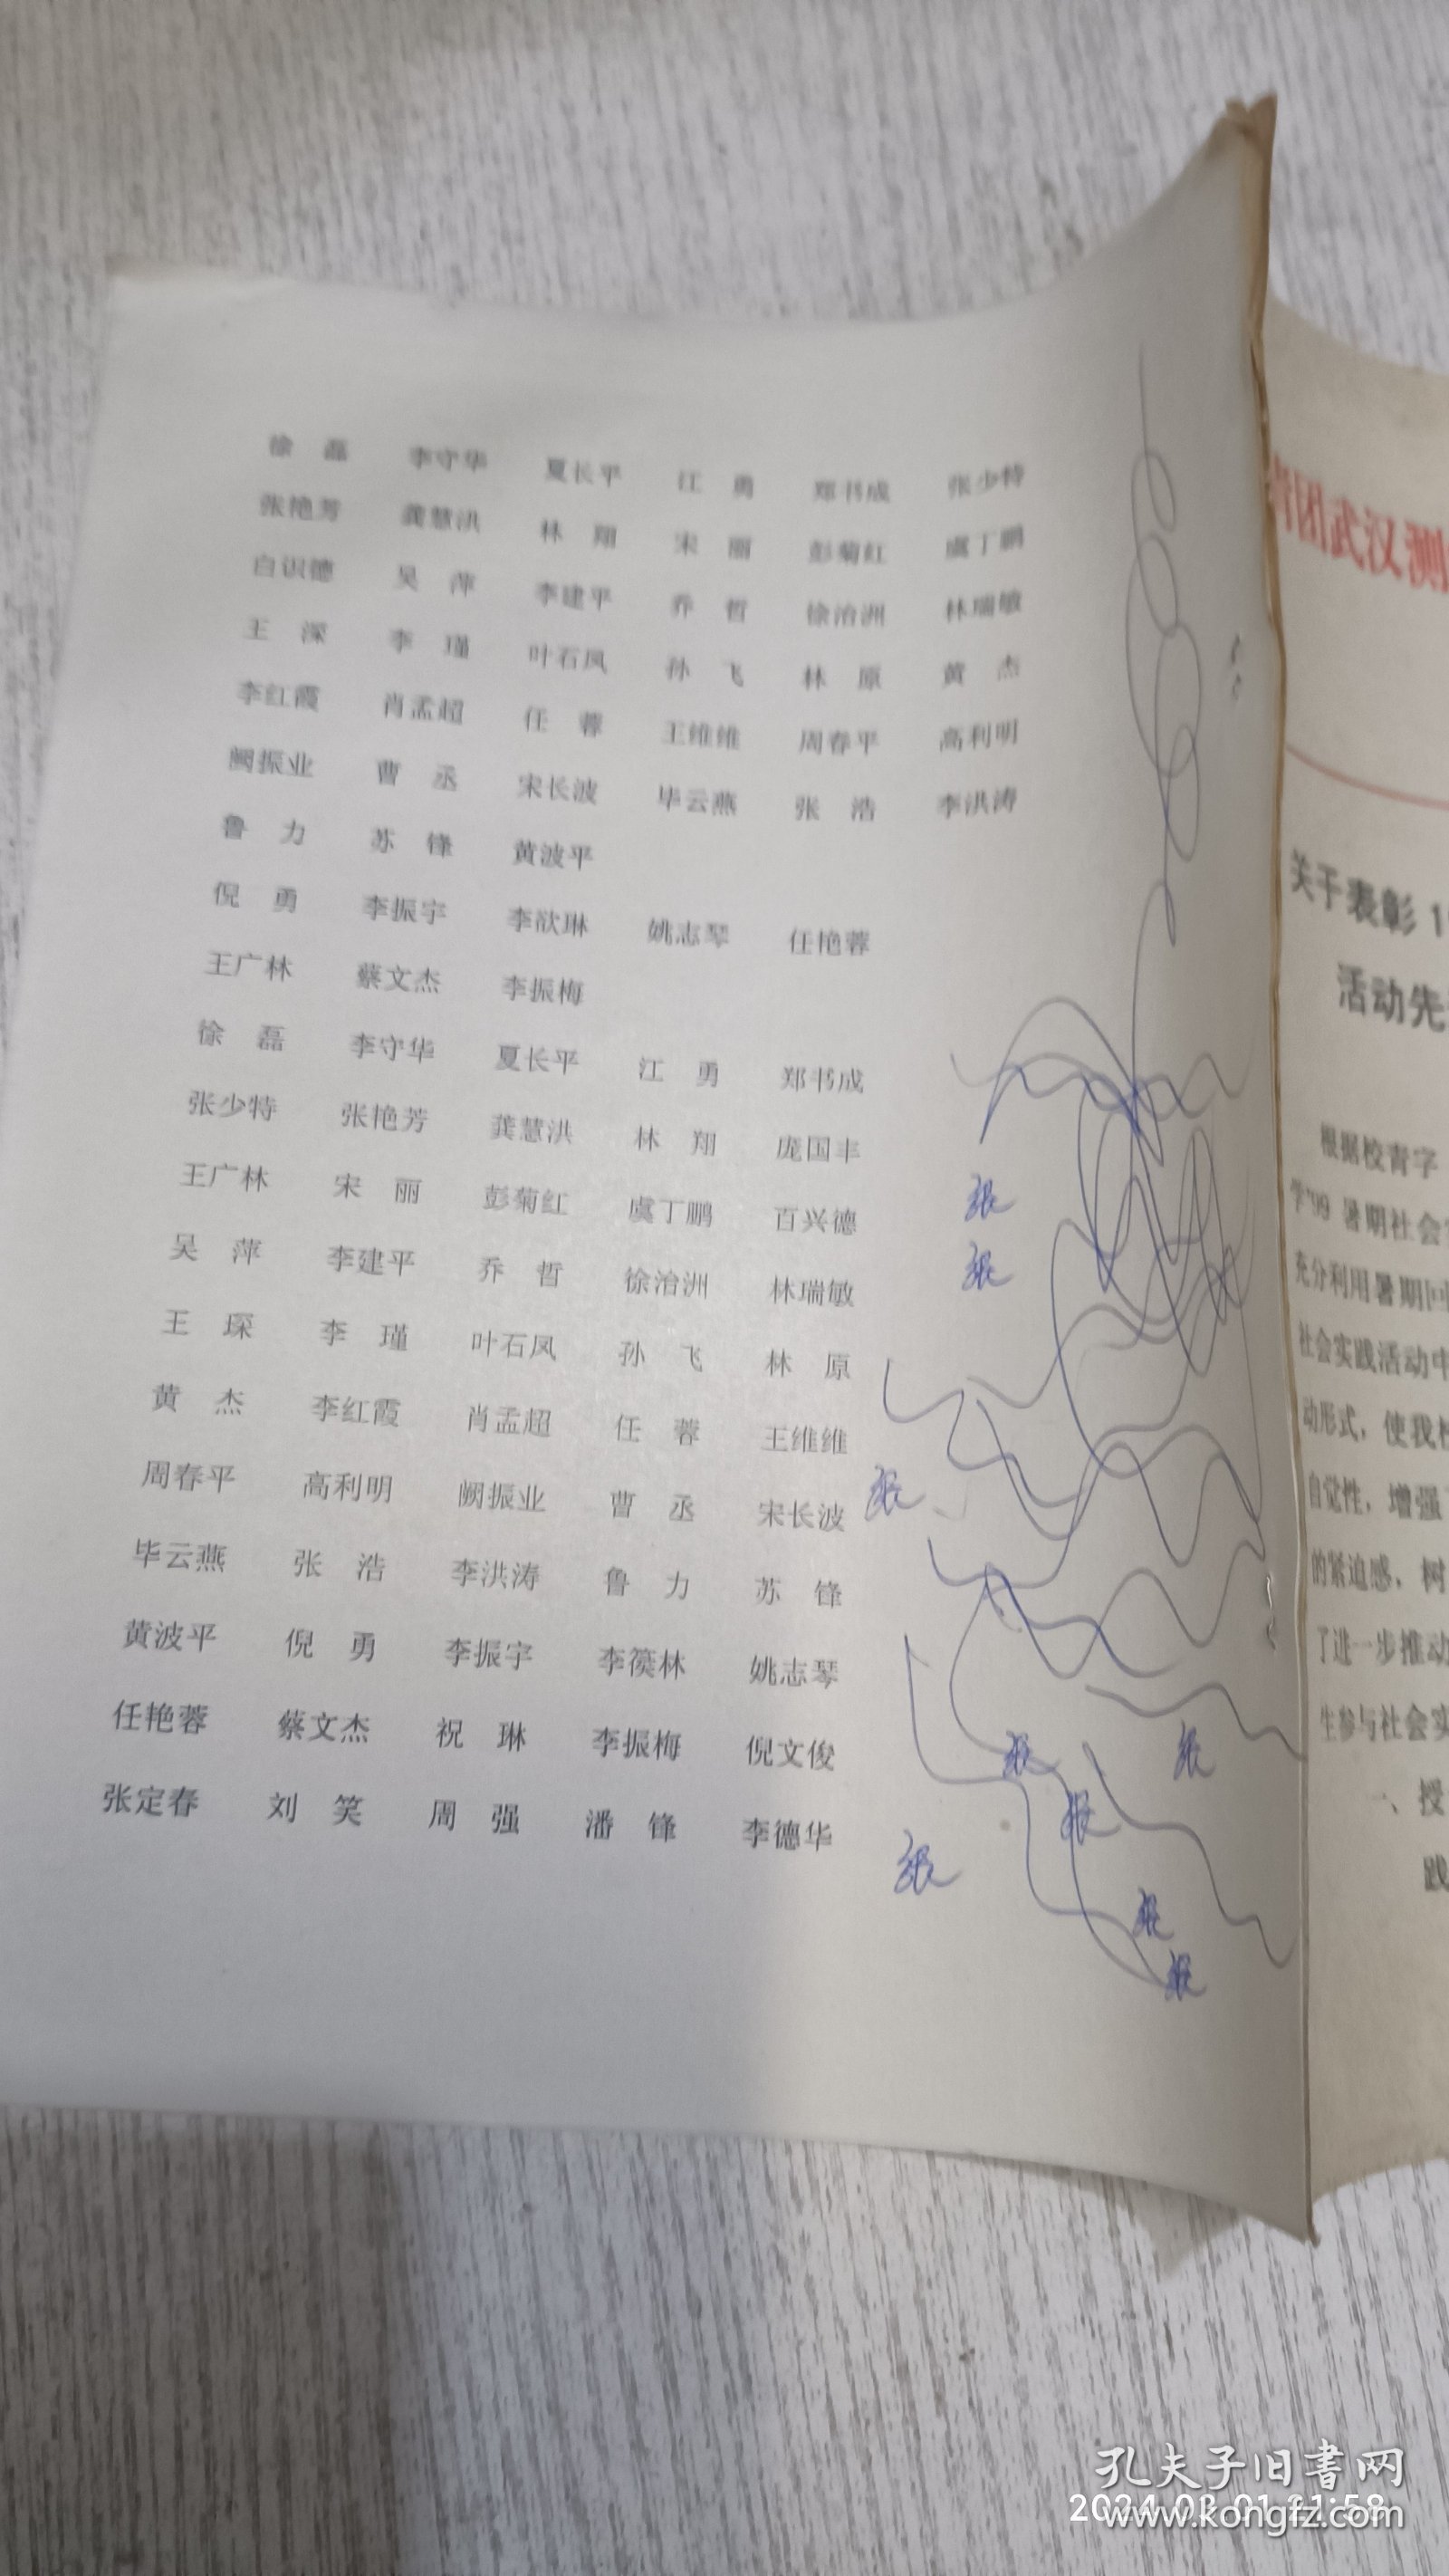 徐　磊　李守华　夏长平　江　勇　郑书成　张少特
张艳芳　龚慧洪　林　翔　宋　丽　彭菊红　虞丁鹏
白识德　吴　萍　李建平　乔　哲　徐治洲　林瑞敏
王　深　李　瑾　叶石凤　孙　飞　林　原　黄　杰
李红霞　肖孟超　任　蓉　王维维　周春平　高利明
阙振业　曹　丞　宋长波　毕云燕　张　浩　李洪涛
鲁　力　苏　锋　黄波平
倪　勇　李振宇　李歆琳　姚志琴　任艳蓉
王广林　蔡文杰　李振梅
徐　磊　李守华　夏长平　江　勇　郑书成
张少特　张艳芳　龚慧洪　林　翔　庞国丰
王广林　宋　丽　彭菊红　虞丁鹏　百兴德
吴　萍　李建平　乔　哲　徐治洲　林瑞敏
王　琛　李　瑾　叶石凤　孙　飞　林　原
黄　杰　李红霞　肖孟超　任　蓉　王维维
周春平　高利明　阙振业　曹　丞　宋长波
毕云燕　张　浩　李洪涛　鲁　力　苏　锋
黄波平　倪　勇　李振宇　李篌林　姚志琴
任艳蓉　蔡文杰　祝　琳　李振梅　倪文俊
张定春　刘　笑　周　强　潘　锋　李德华
青团武汉测
关于表彰1
活动先
根据校青字
学'99暑期社会
充分利用暑期回
社会实践活动中
动形式，使我校
自觉性，增强
的紧迫感，树
了进一步推动
生参与社会实
一、授
践
孔夫子旧书网
www.kongfz.com